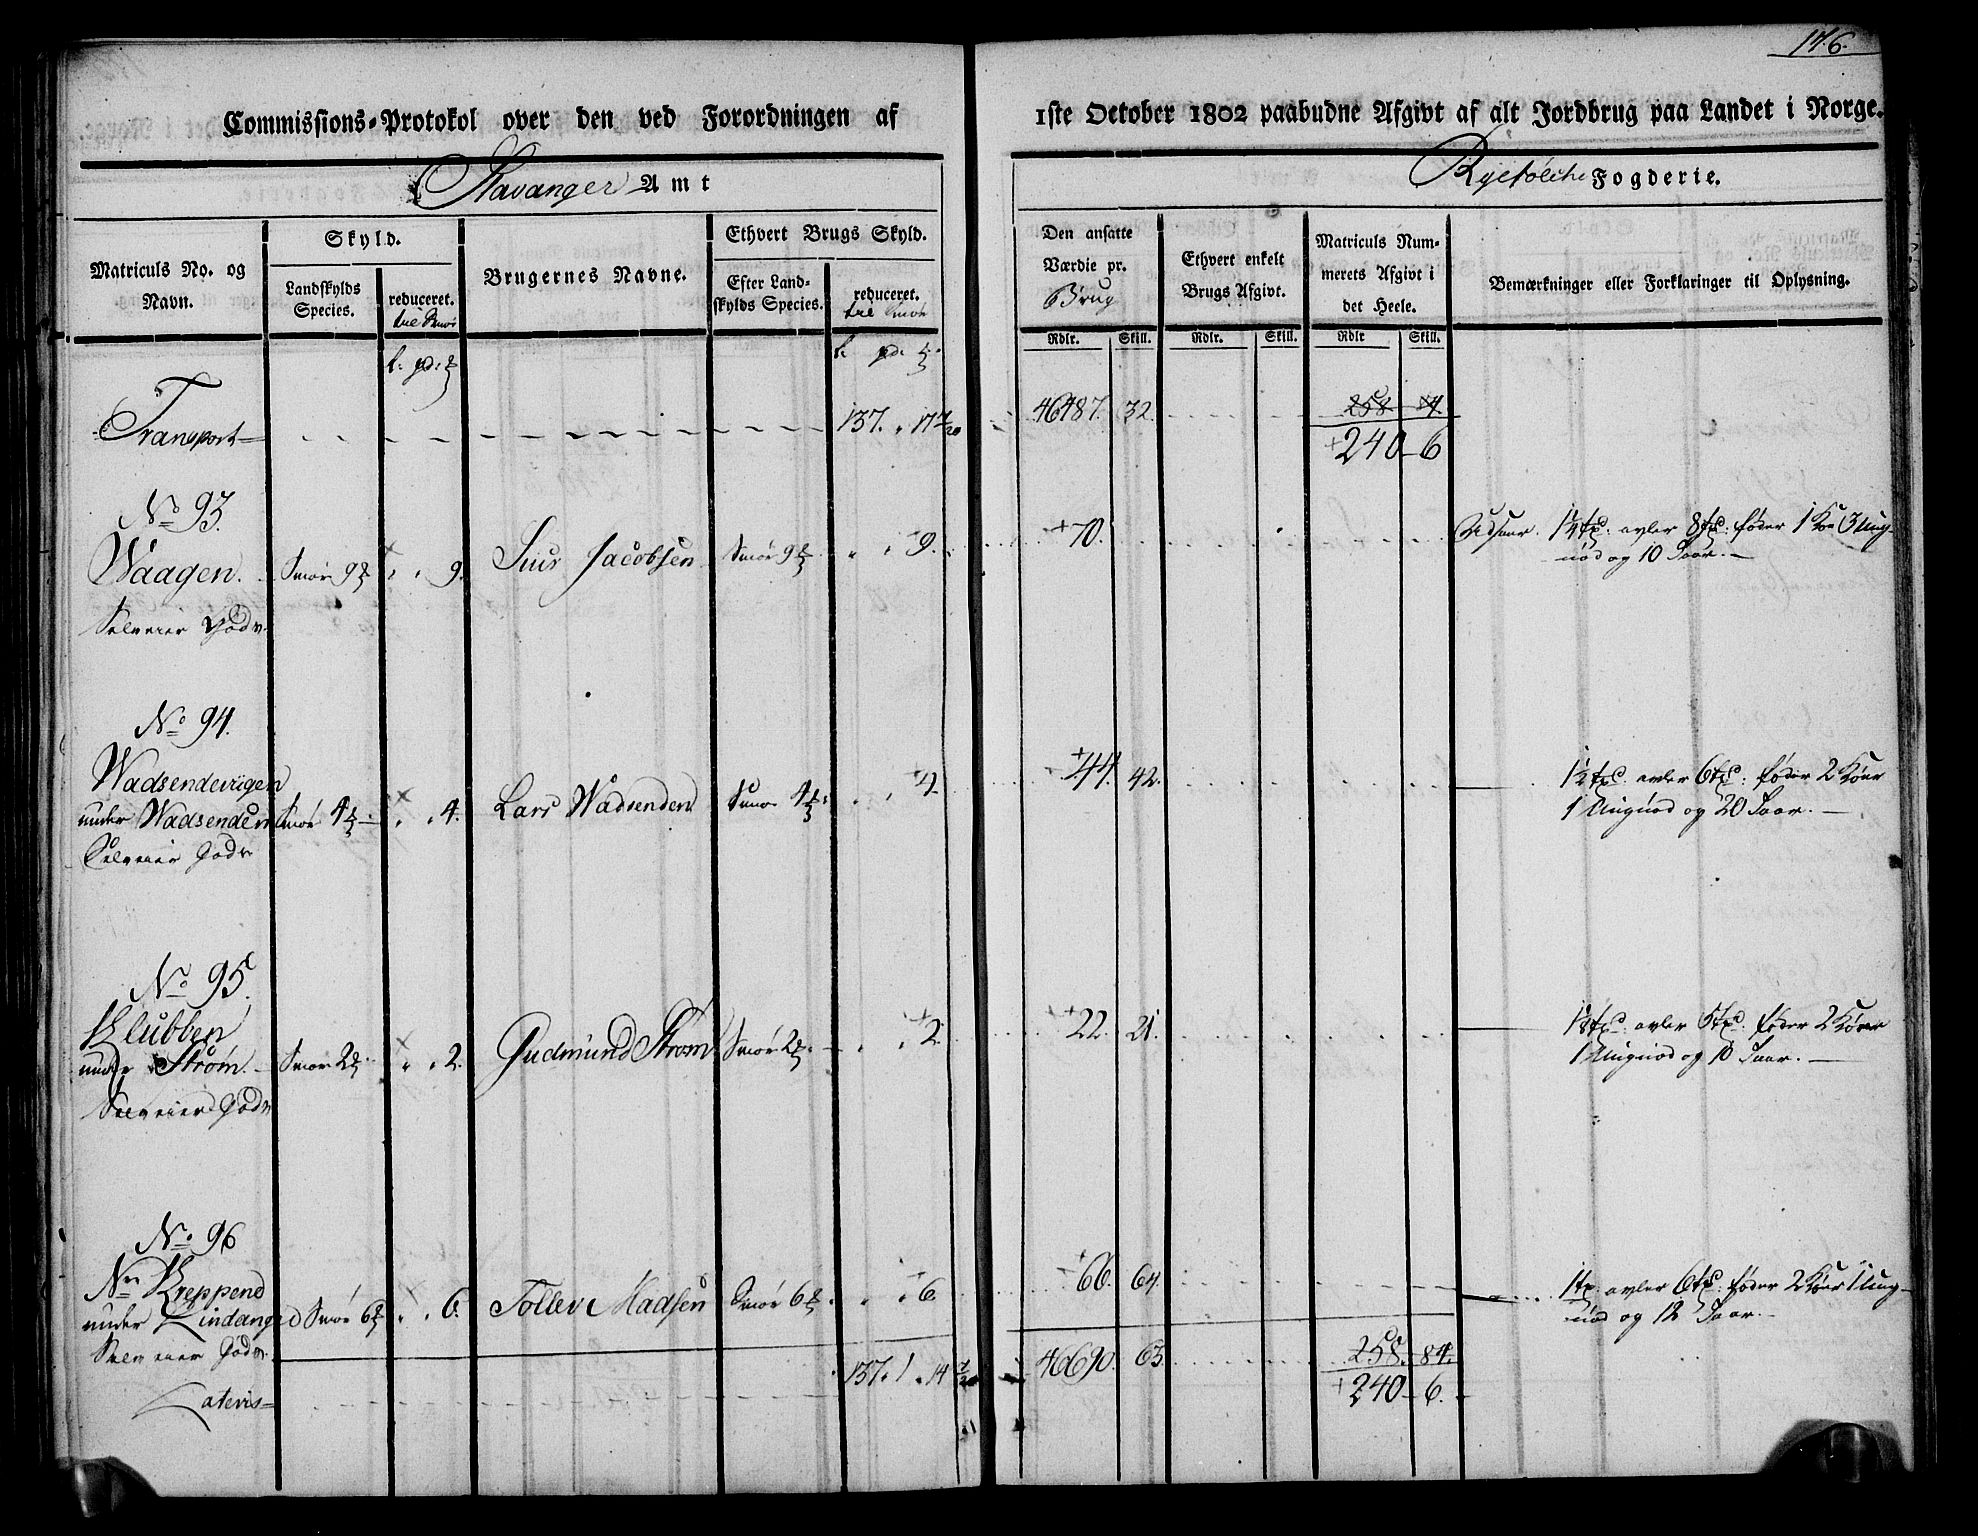 176.
Commissions-Protokol over den ved Forordningen af 1ste October 1802 paabudne Afgivt af alt Jordbrug paa Landet i Norge.
Stavanger Amt
Ryefølche Fogderie.
Matriculs No. og Navn.
Skyld.
Landskylds Species.
reduceret. til Smør
Brugernes Navne.
Ethvert Brugs Skyld.
Efter Landskylds Species.
reduceret. til Smør
Den ansatte Værdie pr. Brug
Ethvert enkelt Brugs Afgivt.
Matriculs Nummerets Afgivt i det Heele.
Bemærkninger eller Forklaringer til Oplysning.
Rdlr. Skill. Rdlr. Skill. Rdlr Skill.
Transport 137. 17 7/20 46487. 32. 258 84
+240 6
No 93.
Waagen. Smør 9 9. Siur Jacobsen Smør 9 9. +70. Udsaar. 1 1/4 tø: avler 8 tø: føder 1 Koe 3 Ung-
nød og 10 Saar.
Selveier Gods
No 94.
Wadsendevigen
under Wadsenden Smør 4 4. Lars Wadsenden Smør 4 4 +44. 42. avler 6 tø: føder 2 Køer
1 Ungnød og 20 Saar.
Selveier Gods
No 95.
Klubben
under Strøm. Smør 2 2. Gudmund Strøm Smør 2 2 +22. 21. avler 5 tø: føder 2 Køer
1 Ungnød og 10 Saar.
Selveier Gods
No 96
Kreppene
under Lindanger Smør 6 6. Tollev Madsen Smør 6 6. 66. 64. 1 tø avler 6 tø: føder 2 Køer 1 Ung-
nød og 12 Saar.
Selveier Gods
Lateris 137. 1. 14 7/20 46690. 63 258. 84.
+240 6.